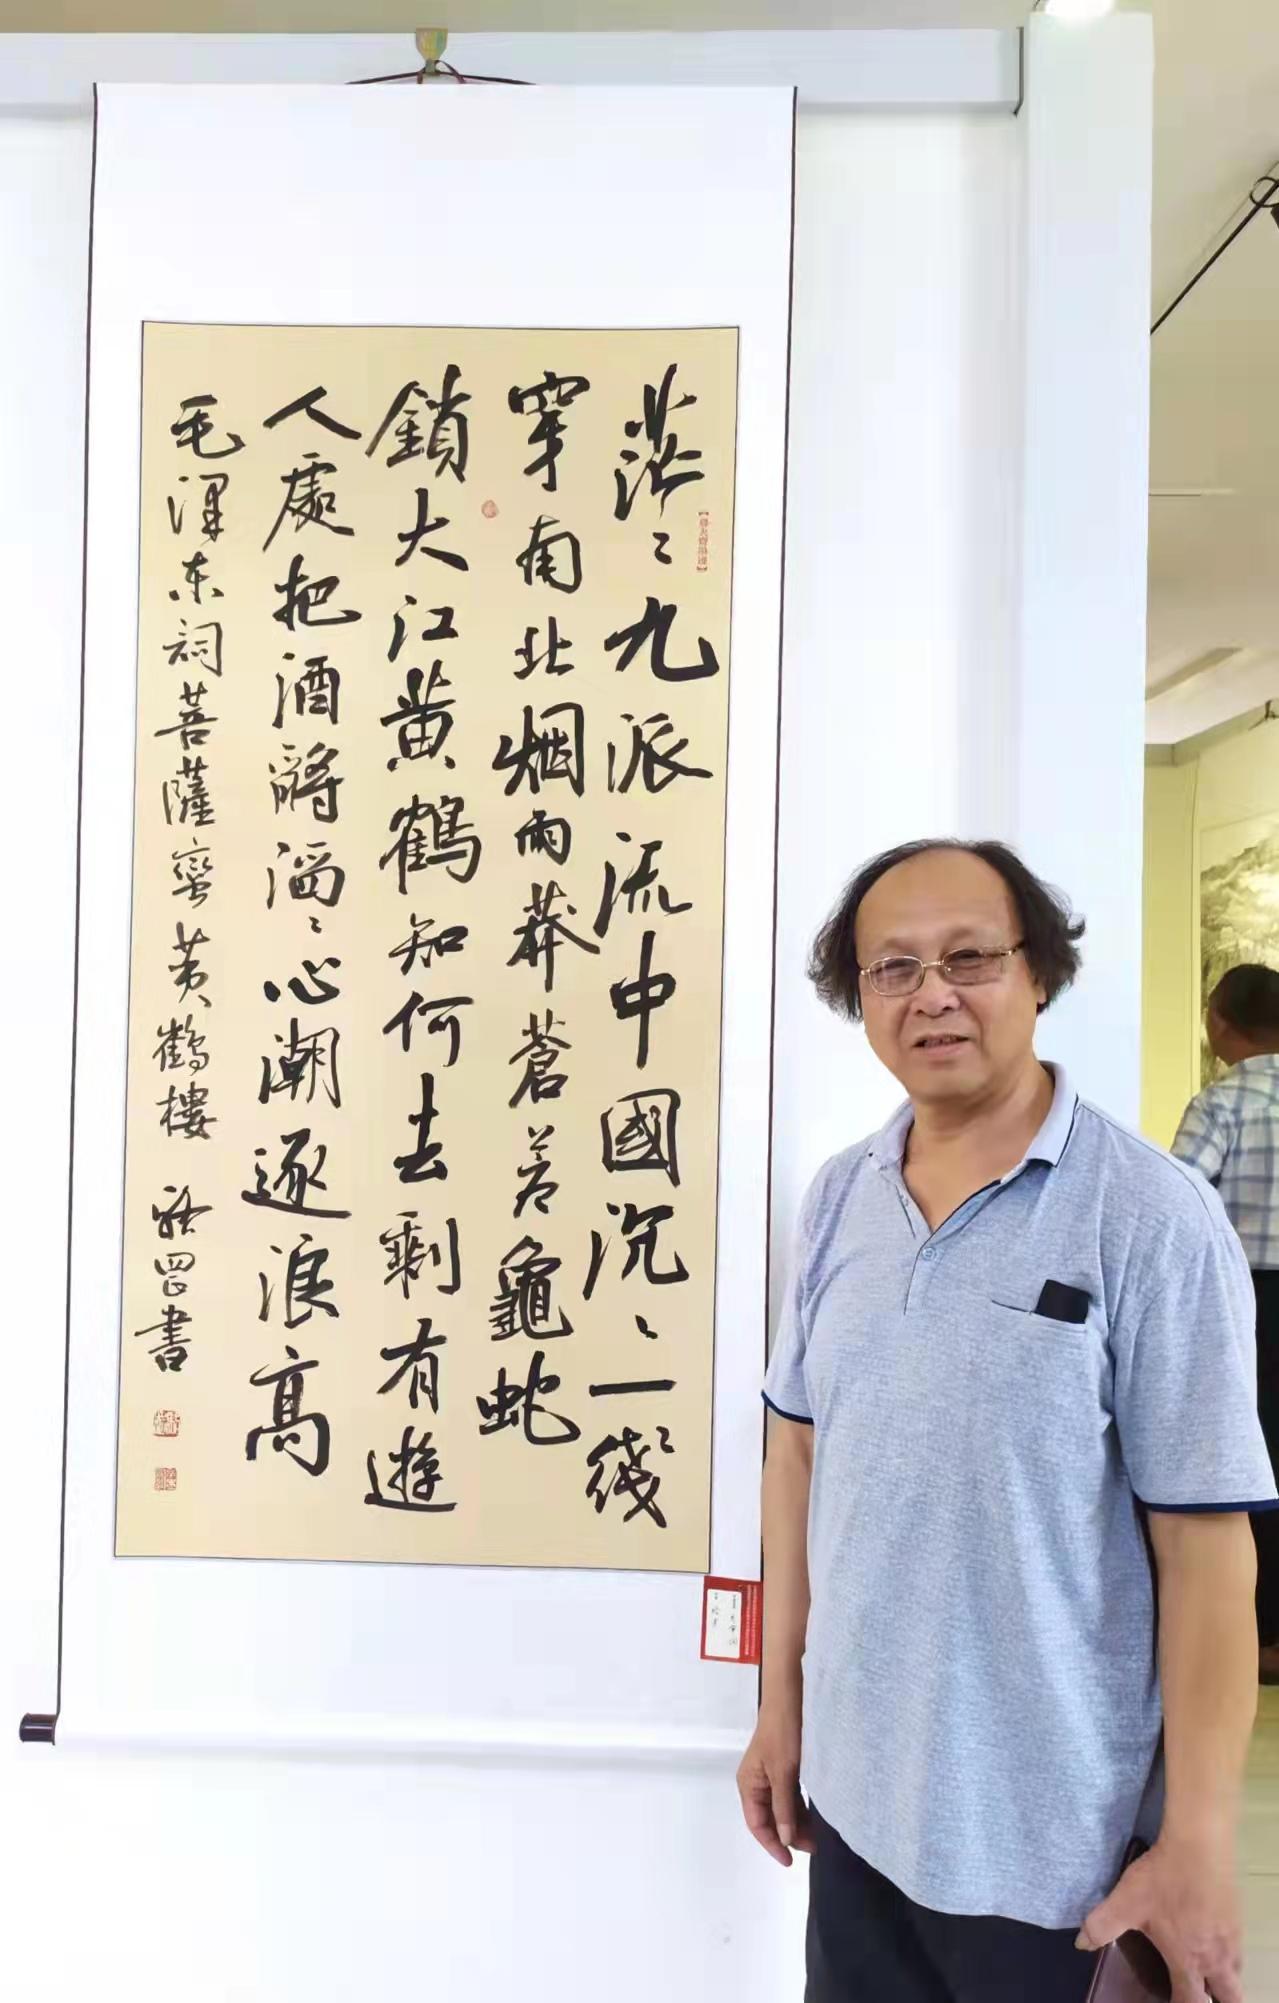 茫〻九派流中國沉〻一綫
穿南北烟雨莽蒼蒼龜蛇
鎖大江黄鶴知何去剩有遊
人處把酒酹滔〻心潮逐浪高
毛澤东詞菩薩蠻黄鶴樓
書